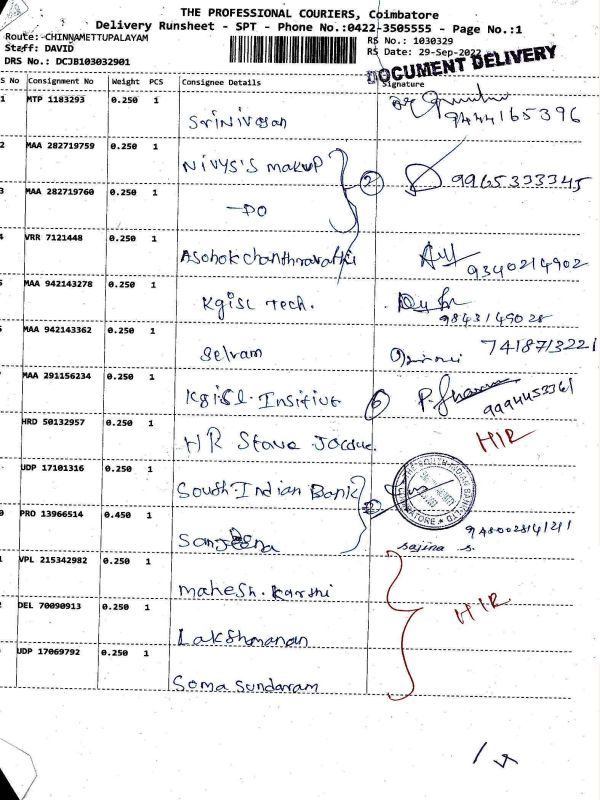 THE PROFESSIONAL COURIERS, Coimbatore
Delivery Runsheet - SPT - Phone No.:0422-3505555 - Page No.:1
Route:-CHINNAMETTUPALAYAM RS No.: 1030329
Staff: DAVID RS Date: 29-Sep-2022
DRS No.: DCJB103032901
DOCUMENT DELIVERY
S No Consignment No Weight PCS Consignee Details Signature
1 MTP 1183293 0.250 1 Srinivasan 9444165396
2 MAA 282719759 0.250 1 Nivys's makup 2 9965333345
3 MAA 282719760 0.250 1 -DO
4 VRR 7121448 0.250 1 Asohokchanthravathi 9340214902
MAA 942143278 0.250 1 Kgisl Tech. 9843149028
MAA 942143362 0.250 1 Selvam 7418713221
MAA 291156234 0.250 1 Kgisl. Insitive 9994453361
HRD 50132957 0.250 1 HR Stove HIR
UDP 17101316 0.250 1 South.Indian Bank
PRO 13966514 0.450 1 Sanjeena sajina s.
VPL 215342982 0.250 1 mahesh.karshi
DEL 70090913 0.250 1 Lakshmanan HIR
UDP 17069792 0.250 1 Soma Sundaram